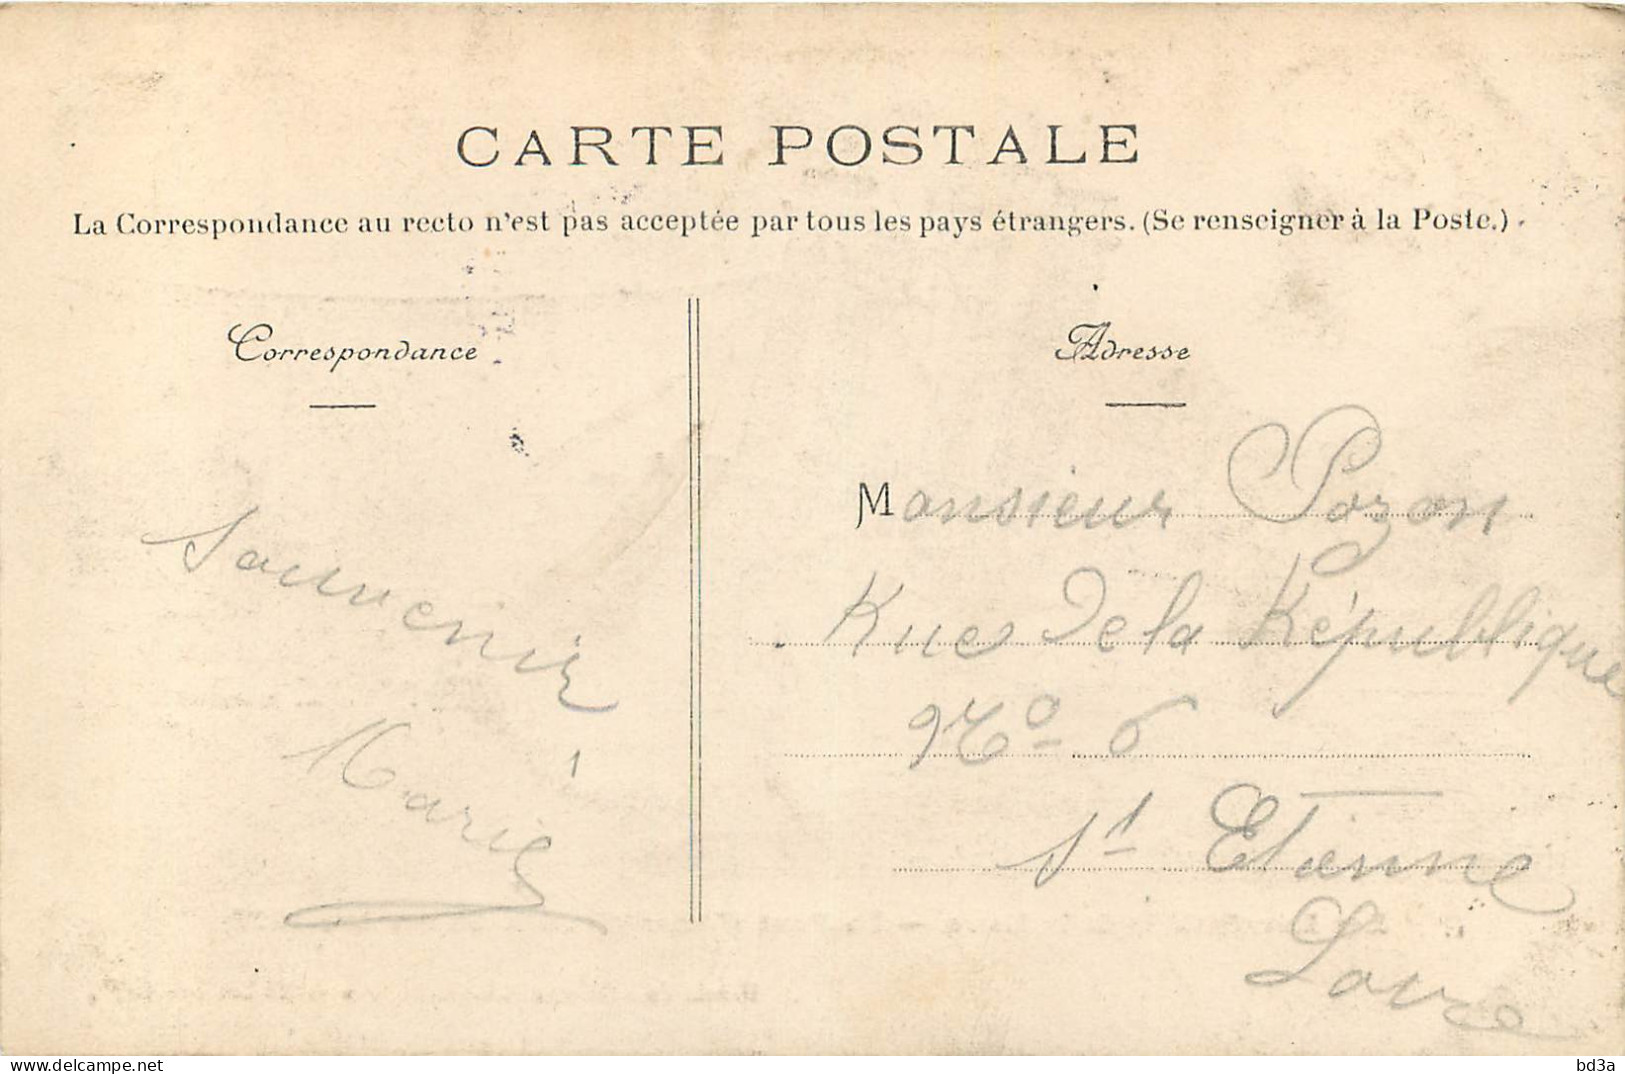 CARTE POSTALE
La Correspondance au recto n'est pas acceptée par tous les pays étrangers. (Se renseigner à la Poste.)
Correspondance
Souvenir
Marie
Adresse
Monsieur Pozon
Rue de la République
No 6
St Etienne
Loire
bd3a